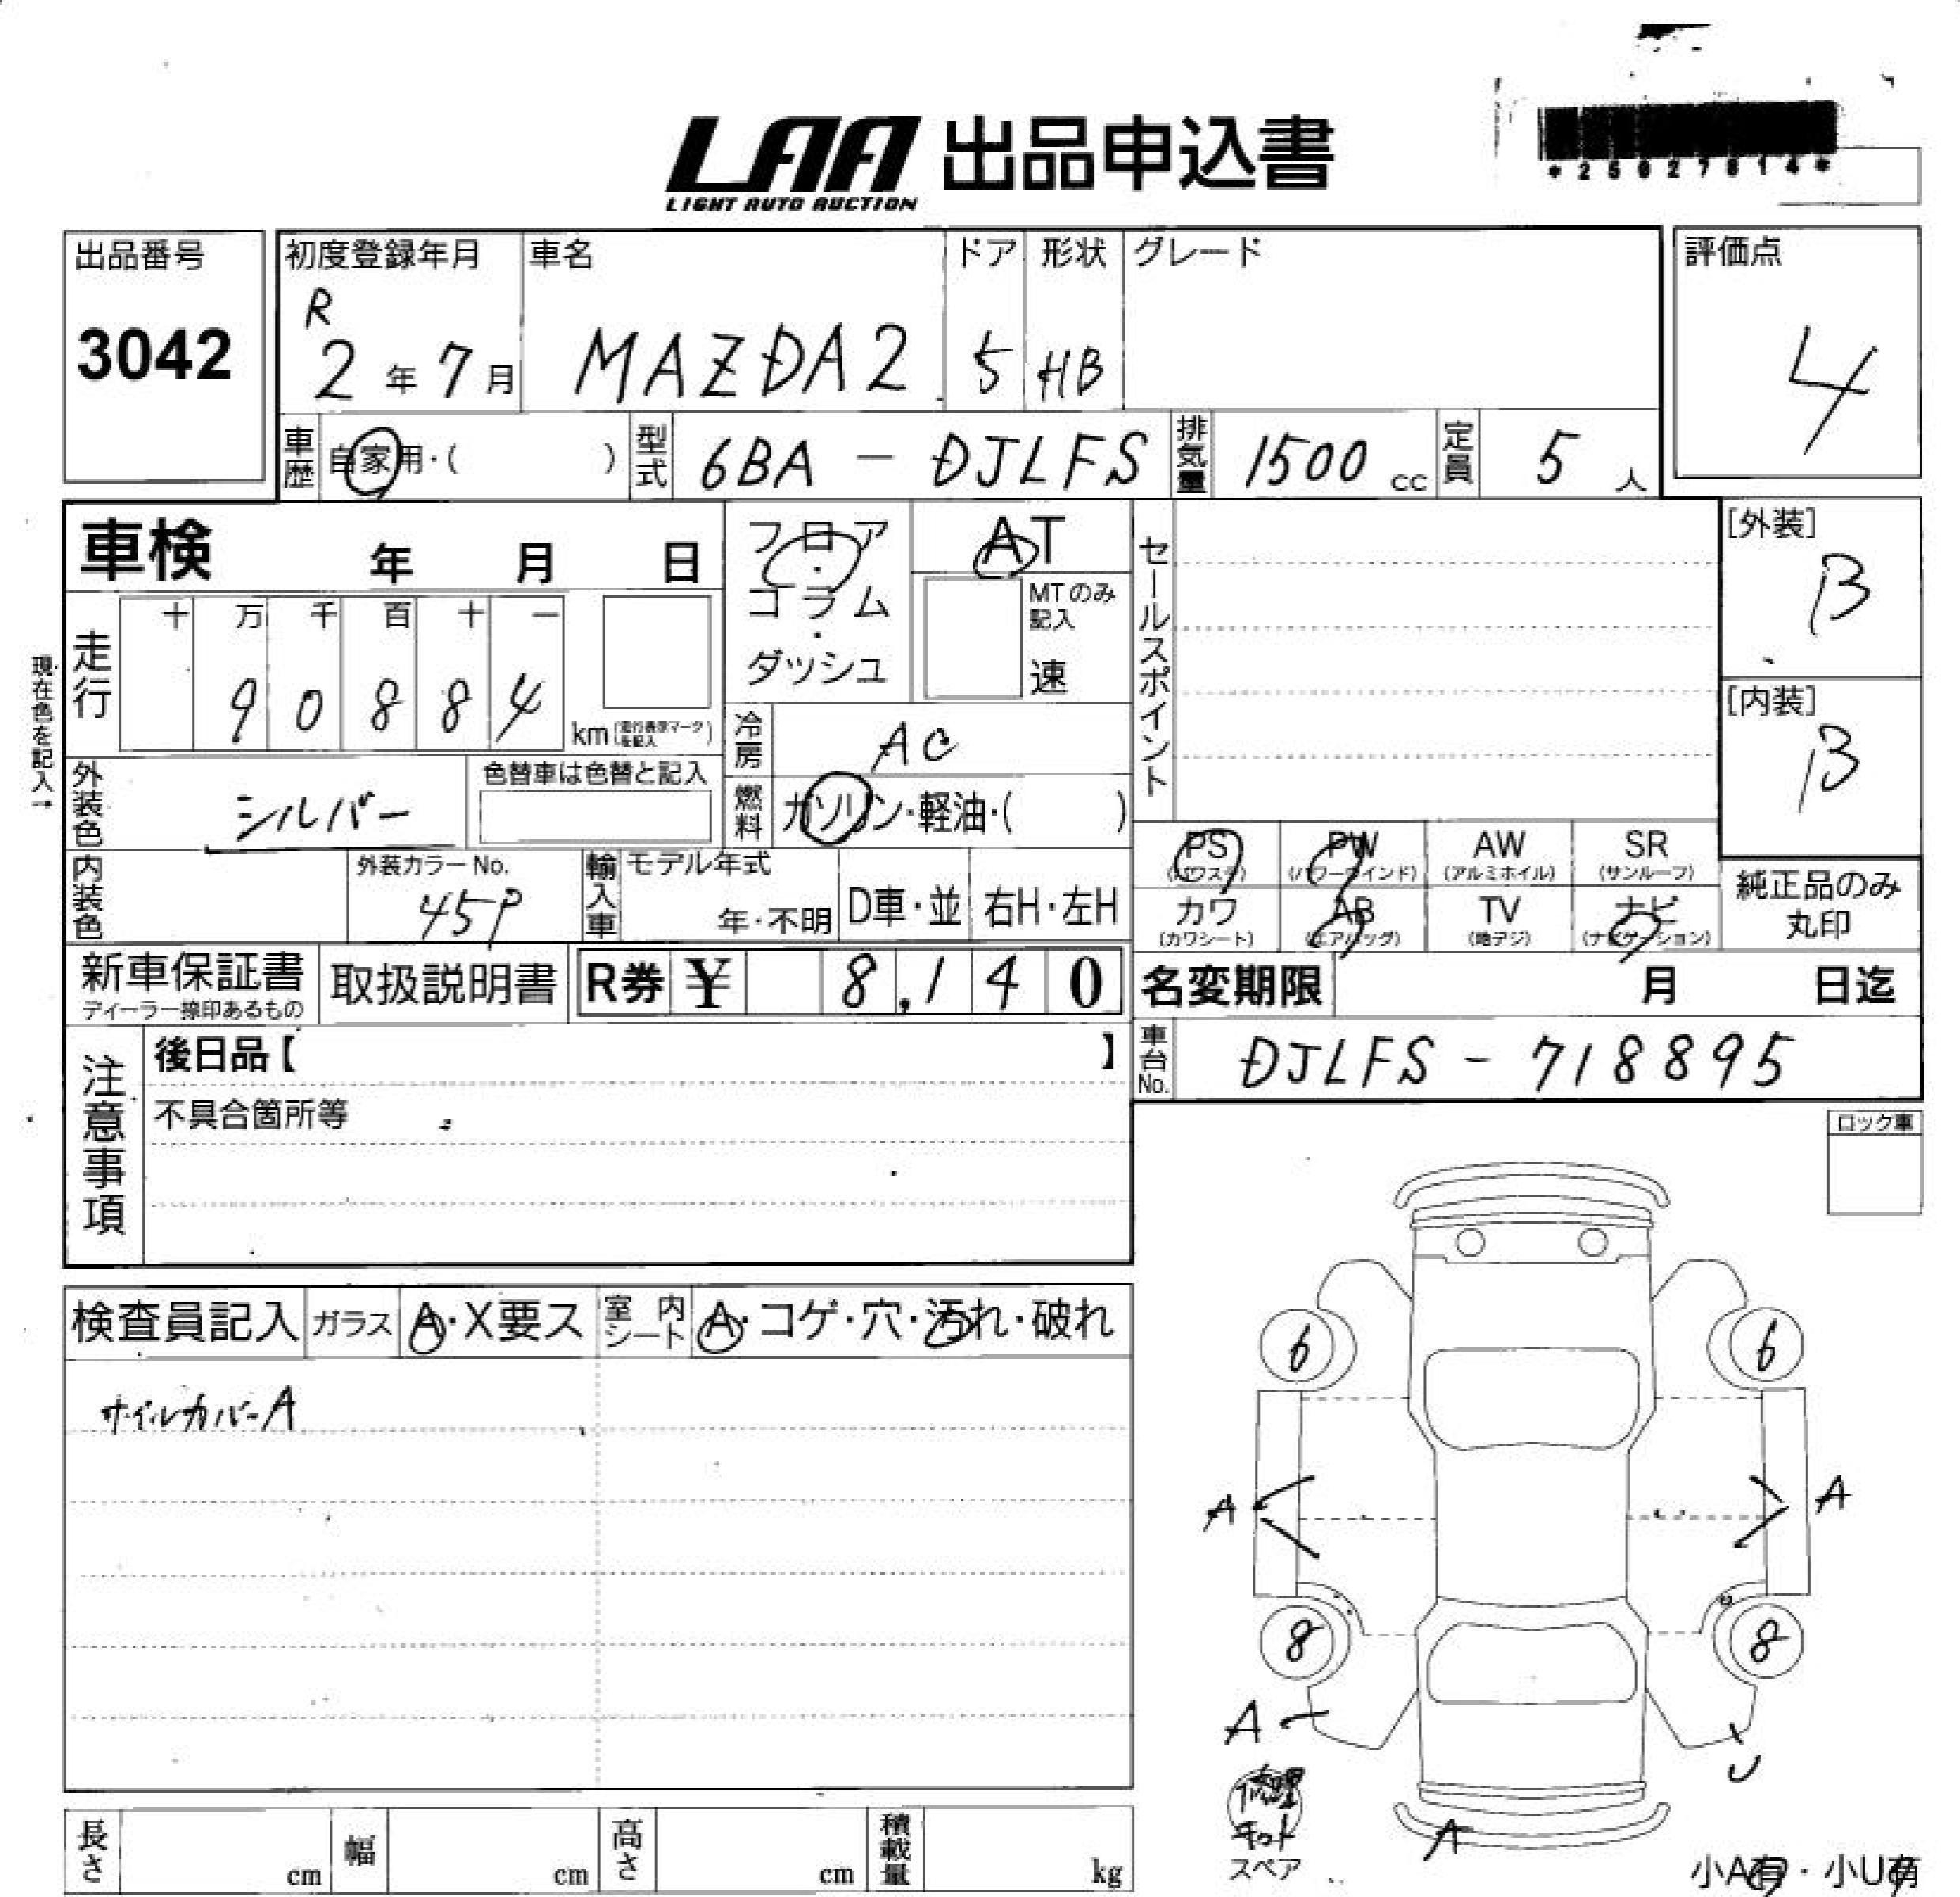 LAA 出品申込書
LIGHT AUTO AUCTION
*25627814*
出品番号
3042
初度登録年月
R
2年7月
車名
MAZDA2
ドア
5
形状
HB
グレード
評価点
4
車歴
自家用・( )
型式
6BA - DJLFS
排気量
1500 cc
定員
5 人
車検 年 月 日
フロア
・
コラム
・
ダッシュ
AT
MTのみ記入
速
セールスポイント
[外装]
B
[内装]
B
現在色を記入→
走行
十 万 千 百 十 一
9 0 8 8 4
km (走行表示マークを記入)
冷房
AC
燃料
ガソリン・軽油・( )
外装色
シルバー
色替車は色替と記入
PS (パワステ)
PW (パワーウインド)
AW (アルミホイル)
SR (サンルーフ)
カワ (カワシート)
AB (エアバッグ)
TV (地デジ)
ナビ (ナビゲーション)
純正品のみ
丸印
内装色
外装カラーNo.
45P
輸入車
モデル年式
年・不明
D車・並
右H・左H
新車保証書
ディーラー捺印あるもの
取扱説明書
R券 ¥ 8,140
名変期限 月 日迄
車台No.
DJLFS - 718895
注意事項
後日品【 】
不具合箇所等
ロック車
検査員記入
ガラス
A・X要ス
室内シート
A・コゲ・穴・汚れ・破れ
ホイルカバーA
6
6
A
A
8
8
A
U
修理
キット
スペア
A
小A有・小U有
長さ cm
幅 cm
高さ cm
積載量 kg